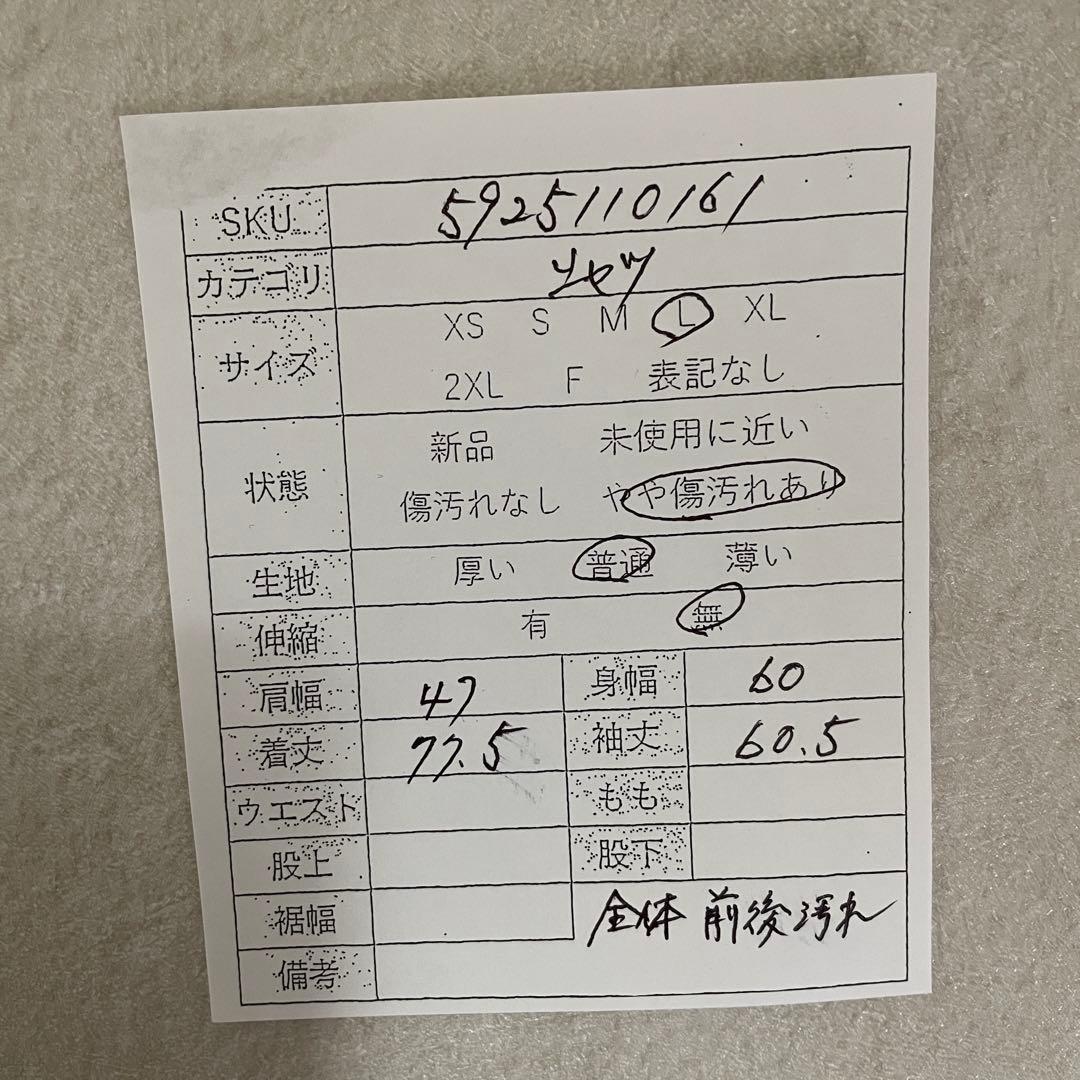 SKU 5925110161
カテゴリ シャツ
サイズ XS S M L XL
2XL F 表記なし
状態 新品 未使用に近い
傷汚れなし やや傷汚れあり
生地 厚い 普通 薄い
伸縮 有 無
肩幅 47 身幅 60
着丈 77.5 袖丈 60.5
ウエスト もも
股上 股下
裾幅 全体 前後汚れ
備考